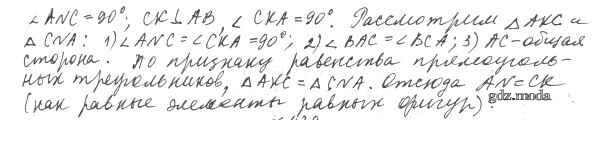 ∠ANC = 90°, CK⊥AB, ∠CKA = 90°. Рассмотрим △AKC и
△CNA: 1) ∠ANC = ∠CKA = 90°; 2) ∠BAC = ∠BCA; 3) AC - общая
сторона. По признаку равенства прямоуголь-
ных треугольников, △AKC = △CNA. Отсюда AN = CK
(как равные элементы равных фигур).
gdz.moda